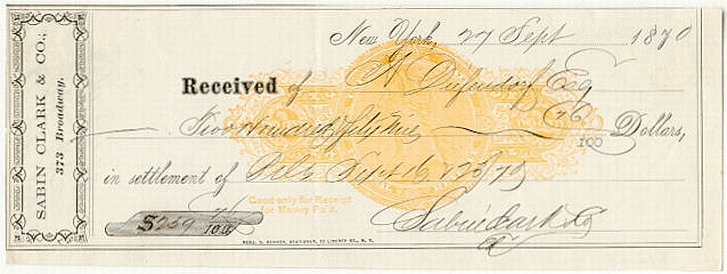 SABIN CLARK & CO.,
373 Broadway.
New York, 27 Sept 1870
Received of A Diefendorf Esq
Two Hundred fifty Nine 76/100 Dollars,
in settlement of Bills Sept 16 & 23/70
Good only for Receipt
for Money Paid.
$259 76/100
Sabin Clark & Co